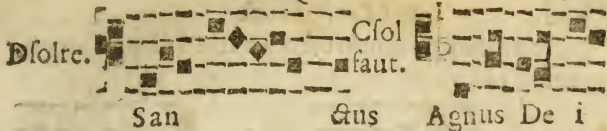 Dſolre. Cſol
faut.
San ctus Agnus De i